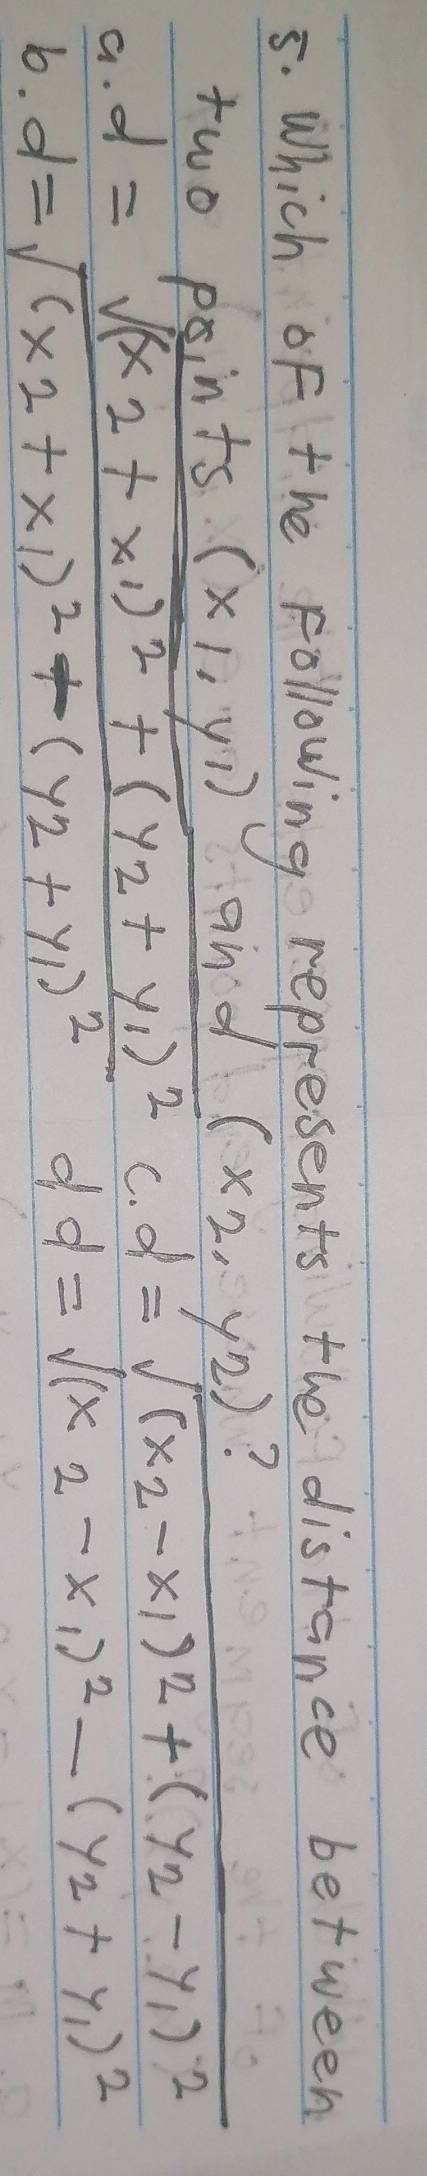 5. Which of the Following represents the distance between
two points (x1, y1) and (x2, y2)?
a. d = √(x2 + x1)² + (y2 + y1)² c. d = √(x2 - x1)² + (y2 - y1)²
b. d = √(x2 + x1)² + (y2 + y1)² d. d = √(x2 - x1)² - (y2 + y1)²